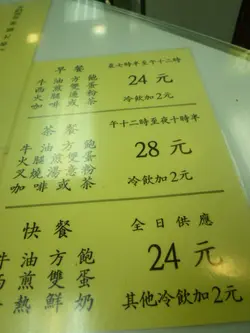 早餐
晨七時半至午十二時
牛油方飽
西煎雙蛋
火腿通粉
咖啡或茶
24元
冷飲加2元
茶餐
午十二時至夜十時半
牛油方飽
火腿煎蛋
叉燒湯意粉
咖啡或茶
28元
冷飲加2元
快餐
全日供應
牛油方飽
煎雙蛋
熱鮮奶
24元
其他冷飲加2元